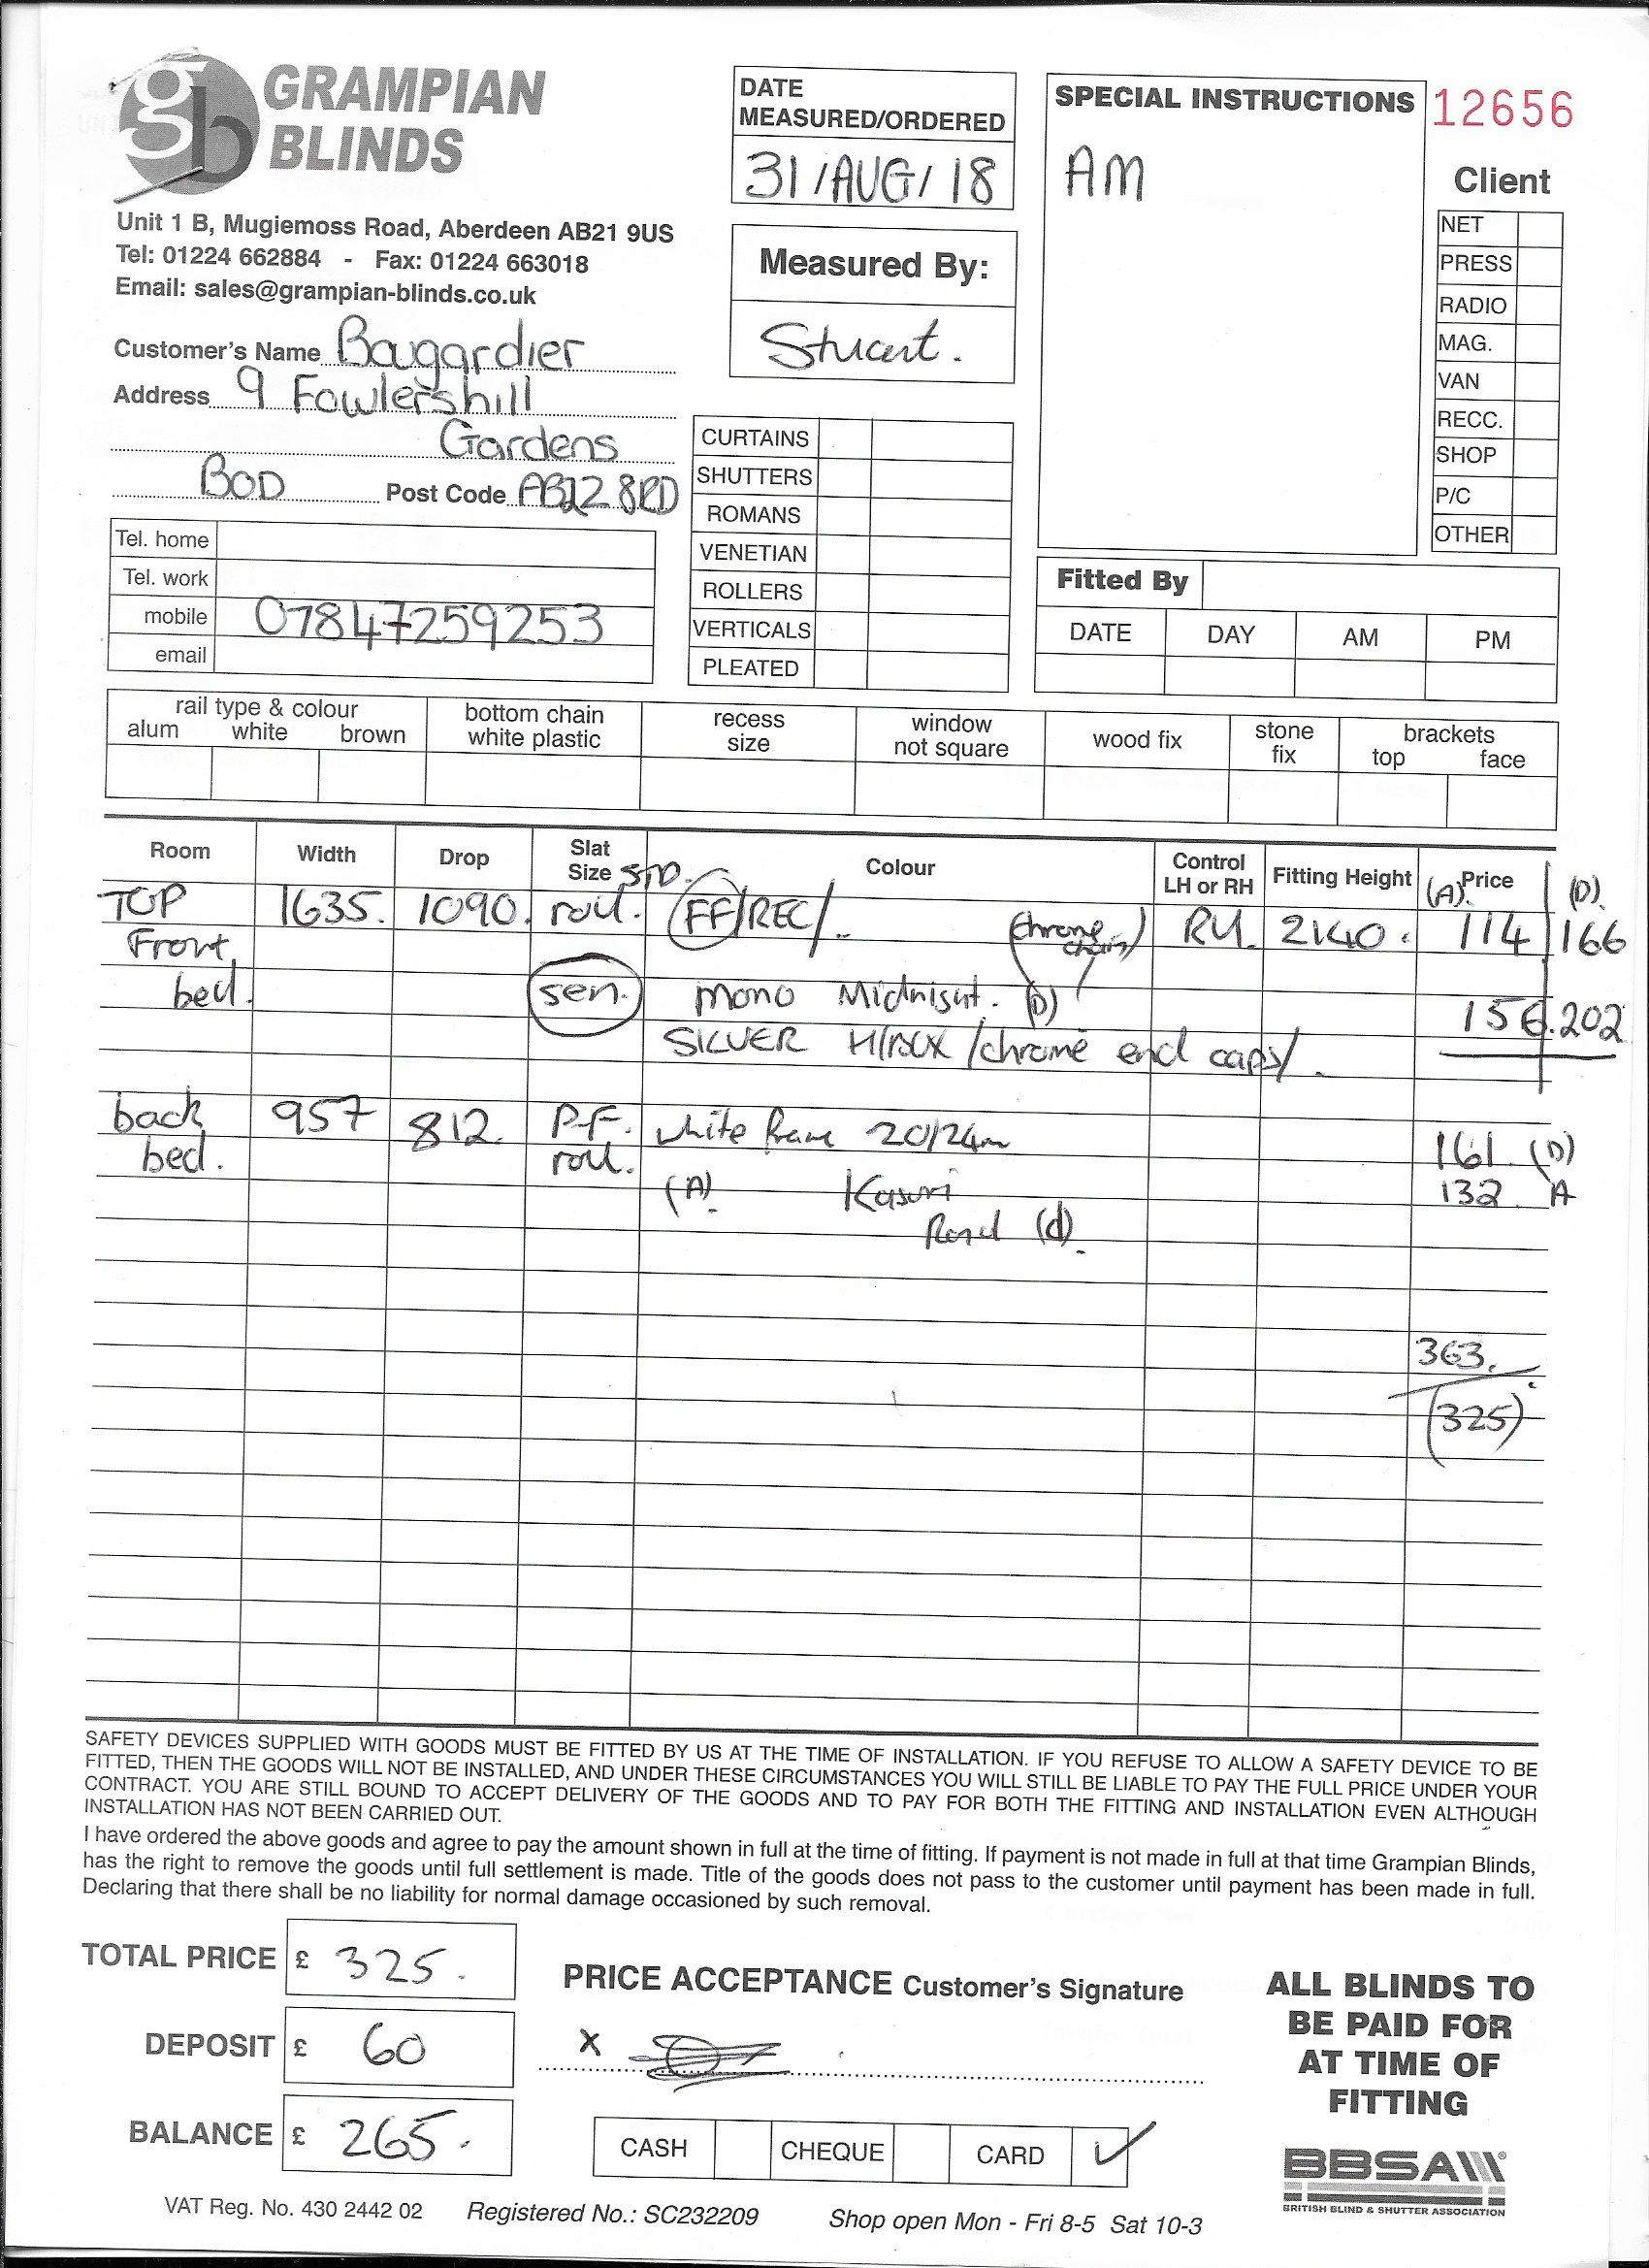 gb GRAMPIAN
BLINDS
Unit 1 B, Mugiemoss Road, Aberdeen AB21 9US
Tel: 01224 662884 - Fax: 01224 663018
Email: sales@grampian-blinds.co.uk
DATE
MEASURED/ORDERED
31/AUG/18
Measured By:
Stuart.
SPECIAL INSTRUCTIONS
AM
12656
Client
NET
PRESS
RADIO
MAG.
VAN
RECC.
SHOP
P/C
OTHER
Customer's Name Baugardier
Address 9 Fowlershill
Gardens
BOD Post Code AB22 8RD
Tel. home
Tel. work
mobile 07847259253
email
CURTAINS
SHUTTERS
ROMANS
VENETIAN
ROLLERS
VERTICALS
PLEATED
Fitted By
DATE DAY AM PM
rail type & colour
alum white brown
bottom chain
white plastic
recess
size
window
not square
wood fix
stone
fix
brackets
top face
Room Width Drop Slat Size STD. Colour Control LH or RH Fitting Height (A). Price (D).
TOP 1635. 1090. roll. FF/REC/. (chrome chain) RH. 2140. 114 166
Front
bed. sen. mono Midnight. (D)
156.202
SILVER H/BOX /chrome end caps/.
back 957 812. P.F. white frame 20/24m
bed. roll. 161. (D)
(A). Kasuri 132. A
(d).
363.
(325)
SAFETY DEVICES SUPPLIED WITH GOODS MUST BE FITTED BY US AT THE TIME OF INSTALLATION. IF YOU REFUSE TO ALLOW A SAFETY DEVICE TO BE
FITTED, THEN THE GOODS WILL NOT BE INSTALLED, AND UNDER THESE CIRCUMSTANCES YOU WILL STILL BE LIABLE TO PAY THE FULL PRICE UNDER YOUR
CONTRACT. YOU ARE STILL BOUND TO ACCEPT DELIVERY OF THE GOODS AND TO PAY FOR BOTH THE FITTING AND INSTALLATION EVEN ALTHOUGH
INSTALLATION HAS NOT BEEN CARRIED OUT.
I have ordered the above goods and agree to pay the amount shown in full at the time of fitting. If payment is not made in full at that time Grampian Blinds,
has the right to remove the goods until full settlement is made. Title of the goods does not pass to the customer until payment has been made in full.
Declaring that there shall be no liability for normal damage occasioned by such removal.
TOTAL PRICE £ 325.
DEPOSIT £ 60
BALANCE £ 265.
PRICE ACCEPTANCE Customer's Signature
X
CASH CHEQUE CARD ✓
ALL BLINDS TO
BE PAID FOR
AT TIME OF
FITTING
BBSA
BRITISH BLIND & SHUTTER ASSOCIATION
VAT Reg. No. 430 2442 02 Registered No.: SC232209 Shop open Mon - Fri 8-5 Sat 10-3